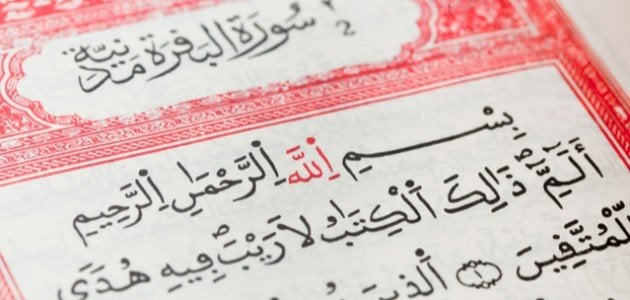 سُورَةُ الْبَقَرَةِ مَدَنِيَّة
2
بِسْمِ اِللَّهِ اِلرَّحْمَٰنِ اِلرَّحِيمِ
أَلَمِّٓ ذَٰلِكَ اَلْكِتَٰبُ لَا رَيْبَ فِيهِ هُدىً
لِّلْمُتَّقِينَ اَلذِينَ